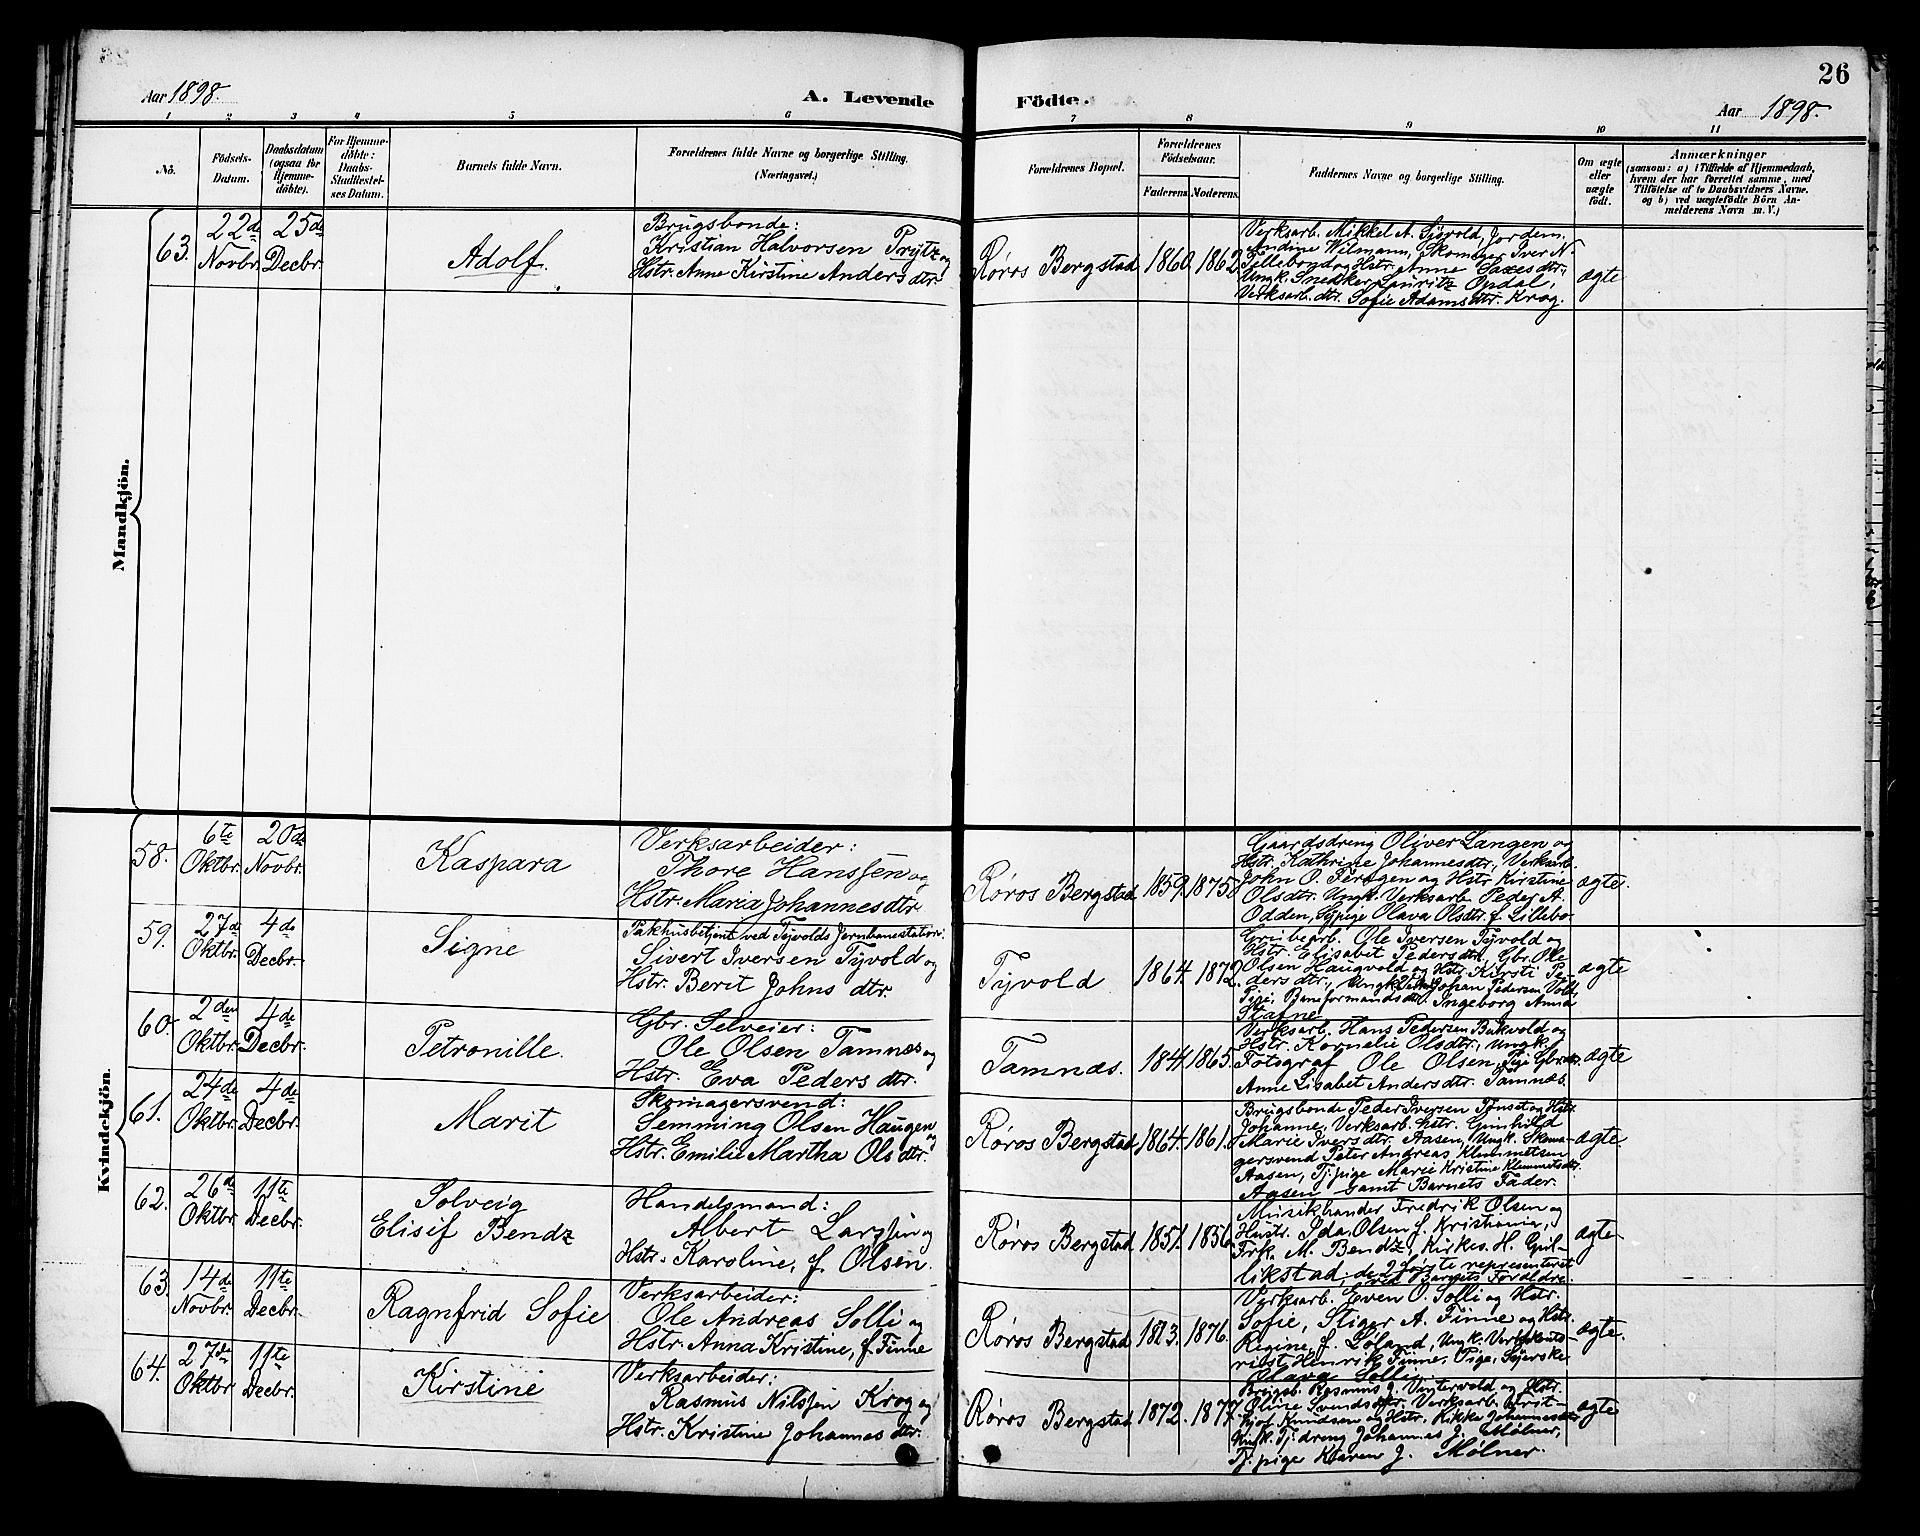 26
Aar 1898.
A. Levende Födte.
Aar 1898.
1 2 3 4 5 6 7 8 9 10 11
No.
Födsels-
Datum.
Daabsdatum
(ogsaa for
Hjemme-
döbte).
For Hjemme-
döbte:
Daabs-
Stadfæstel-
ses Datum.
Barnets fulde Navn.
Forældrenes fulde Navne og borgerlige Stilling.
(Næringsvei.)
Forældrenes Bopæl.
Forældrenes
Födselsaar.
Faderens. Moderens.
Faddernes Navne og borgerlige Stilling.
Om ægte
eller
uægte
födt.
Anmærkninger
(saasom: a) i Tilfælde af Hjemmedaab,
hvem der har forrettet samme, med
Tilföielse af to Daabsvidners Navne.
og b) ved uægtefödte Börn An-
melderens Navn m. V.)
Mandkjön.
63.
22de
Novbr.
25de
Decbr.
Adolf.
Brugsbonde:
Kristian Halvorsen Prytz og
Hstr. Anne Kirstine Andersdtr.
Røros Bergstad
1860. 1862.
Verksarb. Mikkel A. Sjøvold, Jordem.
Andine Wilmann, Skomager Iver N.
Lillebo og Hstr. Anne Saxesdtr.,
Ungk. Snedker Lauritz Opdal,
Verksarb. dtr. Sofie Adamsdtr. Krog.
ægte
Kvindekjön.
58.
6te
Oktbr.
20de
Novbr.
Kaspara
Verksarbeider:
Thore Hanssen og
Hstr. Maria Johannesdtr.
Røros Bergstad
1859. 1875.
Gaardsdreng Oliver Langen og
Hstr. Kathrine Johannesdtr., Verksarb.
John O. Feragen og Hstr. Kirstine
Olsdtr. Ungk. Verksarb. Peder A.
Odden, Sypige Olava Olsdtr. f. Lillebo.
ægte.
59.
27de
Oktbr.
4de
Decbr.
Signe
Pakhusbetjent ved Tyvolds Jernbanestation:
Sivert Iversen Tyvold og
Hstr. Berit Johns dtr.
Tyvold
1864. 1872.
Grubearb. Ole Iversen Tyvold og
Hstr. Elisabet Pedersdtr., Gbr. Ole
Olsen Haugvold og Hstr. Kirsti Pe-
dersdtr., Ungk. Johan Pedersen Vold,
Pige, Baneformandsdtr. Ingeborg Anna
Stafne
ægte
60.
2den
Oktbr.
4de
Decbr.
Petronille.
Gbr. Selveier:
Ole Olsen Tamnes og
Hstr. Eva Peders dtr.
Tamnæs.
1841. 1865.
Verksarb. Hans Pedersen Bukvold og
Hstr. Kornelie Olsdtr., Ungk.
Fotograf Ole Olsen, Pige Gbrdtr.
Anne Lisabet Andersdtr. Tamnæs.
ægte
61.
24de
Oktbr.
4de
Decbr.
Marit
Skomagersvend:
Semming Olsen Haugen og
Hstr. Emilie Martha Olsdtr.
Røros Bergstad
1864. 1861.
Brugsbonde Peder Iversen Tønset og Hstr.
Johanne, Verksarb. Hstr. Gunhild
Marie Iversdtr. Aasen, Ungk. Skoma-
gersvend Peter Andreas Klemmetsen
Aasen, Tj.pige Marie Kristine Klemmetsdtr.
Aasen samt Barnets Fader.
ægte
62.
26de
Oktbr.
11te
Decbr.
Solveig
Elisif Bendz
Handelsmand:
Albert Larssen og
Hstr. Karoline, f. Olsen.
Røros Bergstad
1851. 1856.
Musikhandler Fredrik Olsen og
Hustr. Ida Olsen f. Kristiania,
Frk. M. Bendz, Kirkes. H. Gul-
likstad, de 2 første representeret
ved Barnets Forældre.
ægte
63.
14de
Novbr.
11te
Decbr.
Ragnfrid Sofie
Verksarbeider:
Ole Andreas Solli og
Hstr. Anna Kristine, f. Finne
Røros Bergstad
1873. 1876.
Verksarb. Even O. Solli og Hstr.
Sofie, Stiger A. Finne og Hstr.
Regine, f. Loland, Ungk.
Henrik Finne, Pige, Syerske
Olava Solli
ægte.
64.
27de
Oktbr.
11te
Decbr.
Kirstine
Verksarbeider:
Rasmus Nilssen Krog og
Hstr. Kristine Johannesdtr.
Røros Bergstad
1872. 1877.
Brugsb. Rasmus J. Vintervold og Hstr.
Oline Svendsdtr. Verksarb. Krit-
Knudsen og Hstr. Kikke Johannesdtr.
Ungk. Tj.dreng Johannes J. Mølner,
Tj.pige Karen J. Mølner.
ægte